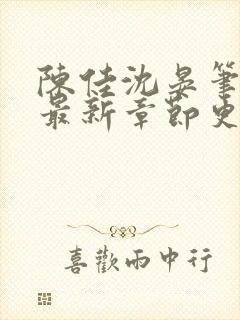 陳佳沈晏筆
最新章節史
喜歡雨中行